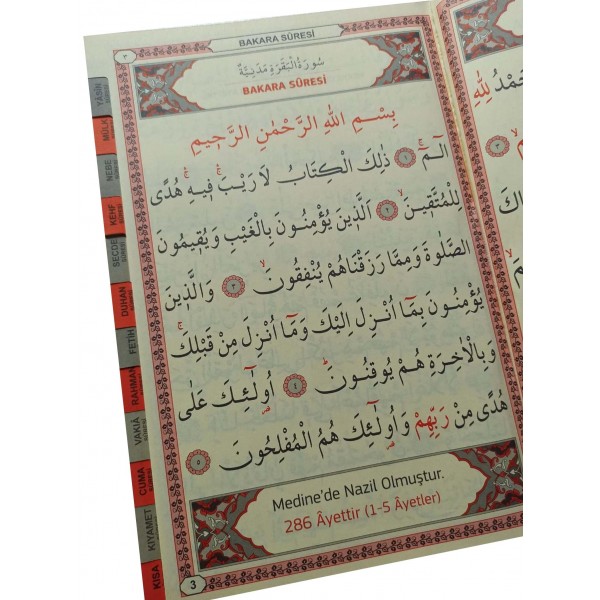 BAKARA SÛRESİ
٣
سُورَةُ الْبَقَرَةِ مَدَنِيَّةٌ
BAKARA SÛRESİ
بِسْمِ اللهِ الرَّحْمٰنِ الرَّحِيمِ
الٓمٓ ۚ ١ ذٰلِكَ الْكِتَابُ لَا رَيْبَ ۚ فِيهِ ۚ هُدًى
لِلْمُتَّقِينَ ۙ ٢ اَلَّذِينَ يُؤْمِنُونَ بِالْغَيْبِ وَيُقِيمُونَ
الصَّلٰوةَ وَمِمَّا رَزَقْنَاهُمْ يُنْفِقُونَ ۙ ٣ وَالَّذِينَ
يُؤْمِنُونَ بِمَٓا اُنْزِلَ اِلَيْكَ وَمَٓا اُنْزِلَ مِنْ قَبْلِكَ ۚ
وَبِالْاٰخِرَةِ هُمْ يُوقِنُونَ ۜ ٤ اُولٰٓئِكَ عَلٰى
هُدًى مِنْ رَبِّهِمْ وَاُولٰٓئِكَ هُمُ الْمُفْلِحُونَ ٥
Medine'de Nazil Olmuştur.
286 Âyettir (1-5 Âyetler)
3
YÂSİN
MÜLK
NEBE
KEHF
SECDE
DUHAN
FETİH
RAHMAN
VAKIA
CUMA
KIYAMET
KISA